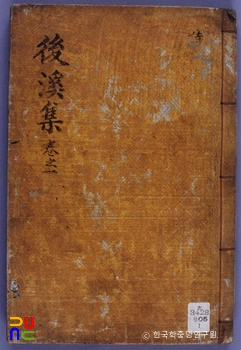 後溪集
卷之一
共
3428
905
1
© 한국학중앙연구원